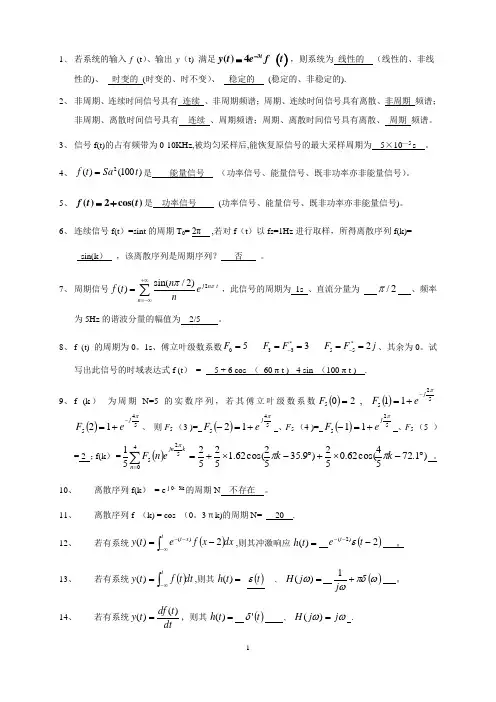 1、 若系统的输入 f (t)、输出 y (t) 满足 y(t) = 4e^{-3t} f(t)，则系统为 线性的 （线性的、非线
性的)、 时变的 (时变的、时不变）、 稳定的 (稳定的、非稳定的).
2、 非周期、连续时间信号具有 连续 、非周期频谱；周期、连续时间信号具有离散、非周期 频谱；
非周期、离散时间信号具有 连续 、周期频谱；周期、离散时间信号具有离散、 周期 频谱。
3、 信号 f(t)的占有频带为 0-10KHz,被均匀采样后,能恢复原信号的最大采样周期为 5×10^{-5} s 。
4、 f(t) = Sa^2(100t)是 能量信号 （功率信号、能量信号、既非功率亦非能量信号）。
5、 f(t) = 2 + cos(t) 是 功率信号 (功率信号、能量信号、既非功率亦非能量信号)。
6、 连续信号 f(t）=sint 的周期 T_0= 2π ,若对 f（t）以 fs=1Hz 进行取样，所得离散序列 f(k)=
sin(k） ，该离散序列是周期序列？ 否 。
7、 周期信号 f(t) = \sum_{n=-∞}^{+∞} \frac{sin(nπ/2)}{n} e^{j2nπ t}，此信号的周期为 1s 、直流分量为 π/2 、频率
为 5Hz 的谐波分量的幅值为 2/5 。
8、 f (t) 的周期为 0。1s、傅立叶级数系数 F_0 = 5 F_3 = F_{-3}^* = 3 F_5 = F_{-5}^* = 2j、其余为 0。试
写出此信号的时域表达式 f (t） = 5 + 6 cos （ 60 π t ) - 4 sin （100 π t ) .
9、 f (k） 为周期 N=5 的实数序列，若其傅立叶级数系数 F_5(0) = 2 , F_5(1) = 1 + e^{-j\frac{2π}{5}}
F_5(2) = 1 + e^{-j\frac{4π}{5}}、 则 F_5 （3 )= F_5(-2) = 1 + e^{j\frac{4π}{5}} 、F_5 （4 )= F_5(-1) = 1 + e^{j\frac{2π}{5}} 、F_5 （5 ）
= 2 ；f(k） = \frac{1}{5}\sum_{n=0}^{4} F_5(n)e^{jn\frac{2π}{5}k} = \frac{2}{5} + \frac{2}{5} × 1.62 cos(\frac{2}{5}πk - 35.9°) + \frac{2}{5} × 0.62 cos(\frac{4}{5}πk - 72.1°) 。
10、 离散序列 f(k） = e^{j 0。3k} 的周期 N 不存在 。
11、 离散序列 f （k) = cos （0。3πk)的周期 N= 20 .
12、 若有系统 y(t) = \int_{-∞}^{t} e^{-(t-x)} f(x-2)dx ,则其冲激响应 h(t) = e^{-(t-2)}ε(t-2) 。
13、 若有系统 y(t) = \int_{-∞}^{t} f(t)dt ,则其 h(t) = ε(t) 、H(jω) = \frac{1}{jω} + πδ(ω) 。
14、 若有系统 y(t) = \frac{df(t)}{dt} ，则其 h(t) = δ'(t) 、H(jω) = jω .
1